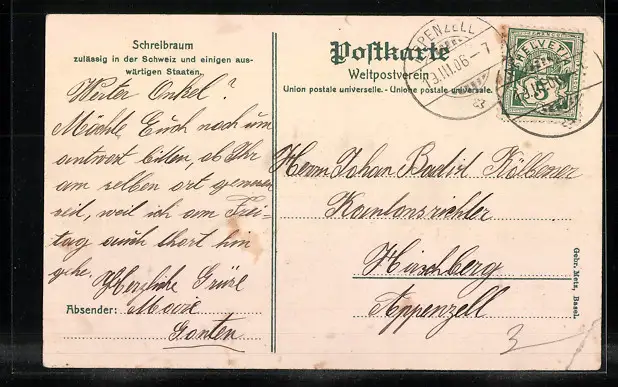 Schreibraum
zulässig in der Schweiz und einigen aus-
wärtigen Staaten.
Werter Onkel?
Möchte Euch noch um
antwort bitten, ob Ihr
am selben ort gewesen
seid, weil ich am Frei-
tag auch thort hin
gehe.
Herzliche Grüse
Absender: Marie
Gonten
Postkarte
Weltpostverein
Union postale universelle. - Unione postale universale.
APPENZELL
13.III.06-7
HELVETIA
5
Herrn Johan
Kantonsrichter
Hirschberg
Appenzell
Gebr. Metz, Basel.
3